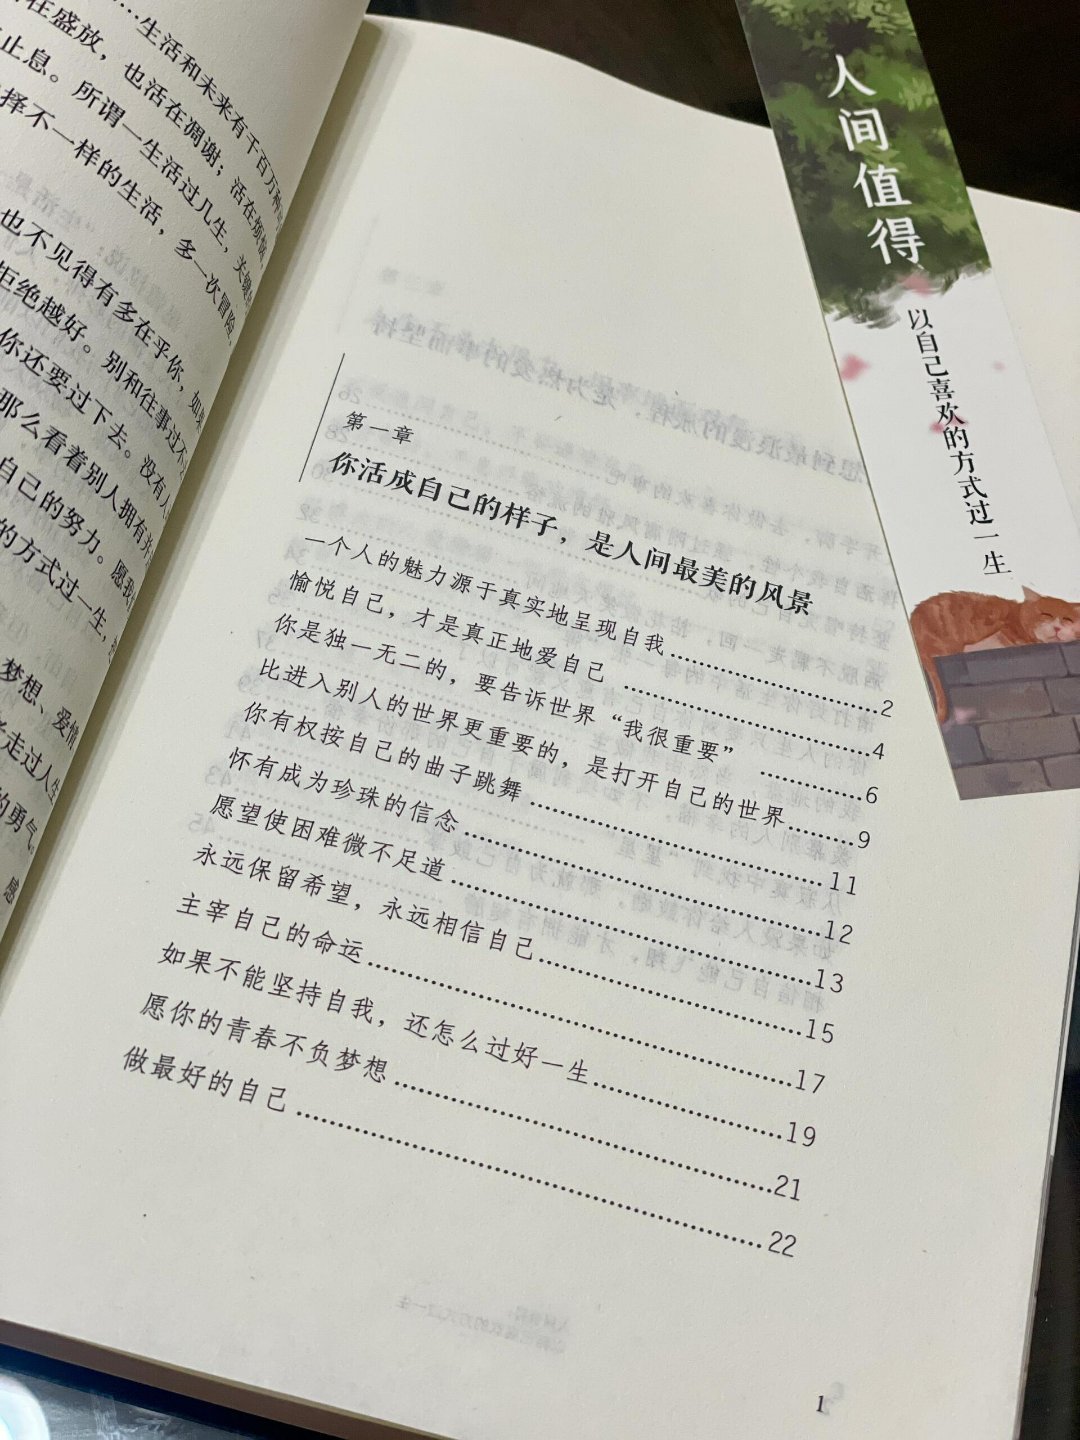 ……生活和未来有千百万种
在盛放，也活在凋谢；活在烦恼，
止息。所谓一生活过几生，关键
择不一样的生活，多一次冒险，
也不见得有多在乎你，如果
拒绝越好。别和往事过不
你还要过下去。没有人
那么看着别人拥有
自己的努力。愿我
的方式过一生，
梦想、爱情
走过人生
的勇气。
感
第一章
你活成自己的样子，是人间最美的风景
一个人的魅力源于真实地呈现自我……2
愉悦自己，才是真正地爱自己……4
你是独一无二的，要告诉世界“我很重要”……6
比进入别人的世界更重要的，是打开自己的世界……9
你有权按自己的曲子跳舞……11
怀有成为珍珠的信念……12
愿望使困难微不足道……13
永远保留希望，永远相信自己……15
主宰自己的命运……17
如果不能坚持自我，还怎么过好一生……19
愿你的青春不负梦想……21
做最好的自己……22
1
人间值得
以自己喜欢的方式过一生